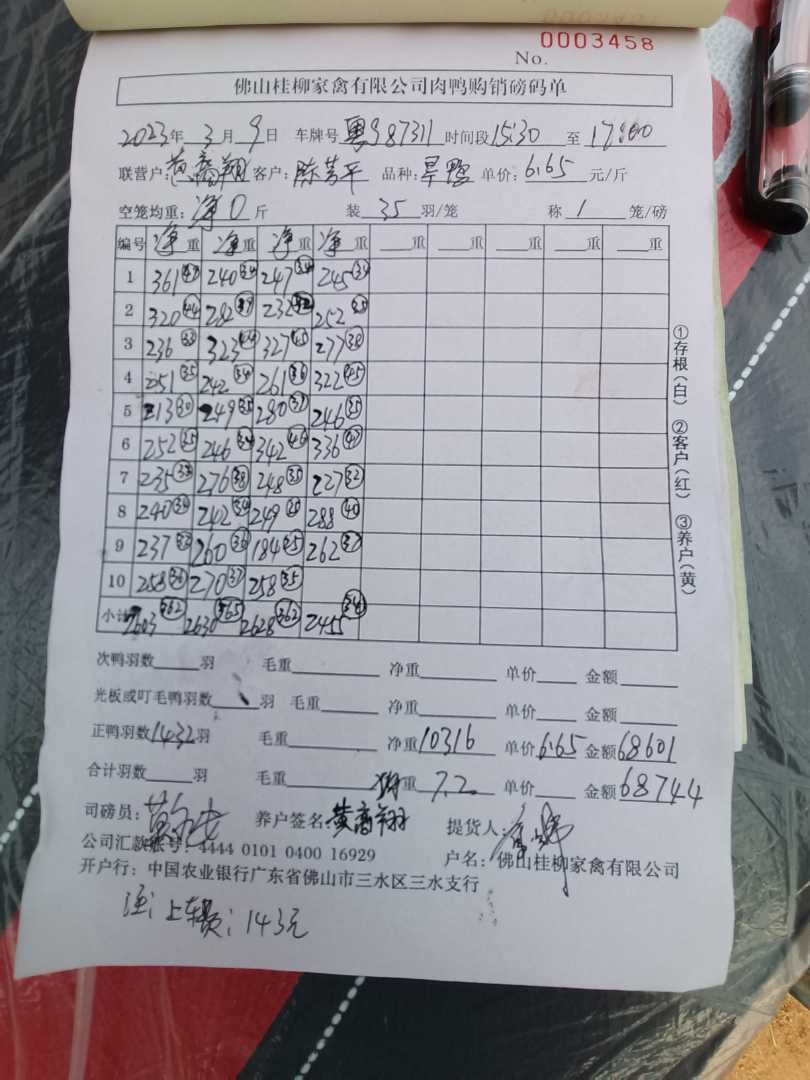 No. 0003458
佛山桂柳家禽有限公司肉鸭购销磅码单
2023年 3月 9日 车牌号 粤J87311 时间段 15:30 至 17:00
联营户: 黄高翔 客户: 陈芳平 品种: 旱鸭 单价: 6.65 元/斤
空笼均重: 净0 斤 装 35 羽/笼 称 1 笼/磅
编号 净重 净重 净重 净重 重 重 重 重
1 361 240 34 247 34 245 34
2 320 44 282 39 232 252 35
3 236 33 323 327 45 277 38
4 251 35 242 34 261 36 322 45
5 213 30 249 35 280 246 35
6 252 35 246 34 342 46 336
7 235 276 38 248 35 227 32
8 240 34 242 34 249 288 40
9 237 33 260 36 184 25 262
10 258 36 270 37 258 35
小计 2603 362 2630 365 2628 362 2455
次鸭羽数 羽 毛重 净重 单价 金额
光板或叮毛鸭羽数 羽 毛重 净重 单价 金额
正鸭羽数 1432 羽 毛重 净重 10316 单价 6.65 金额 68601
合计羽数 羽 毛重 重 7.2 单价 金额 68744
司磅员: 养户签名: 黄高翔 提货人:
公司汇款账号: 4444 0101 0400 16929 户名: 佛山桂柳家禽有限公司
开户行: 中国农业银行广东省佛山市三水区三水支行
注: 上车费: 143元
①存根(白) ②客户(红) ③养户(黄)